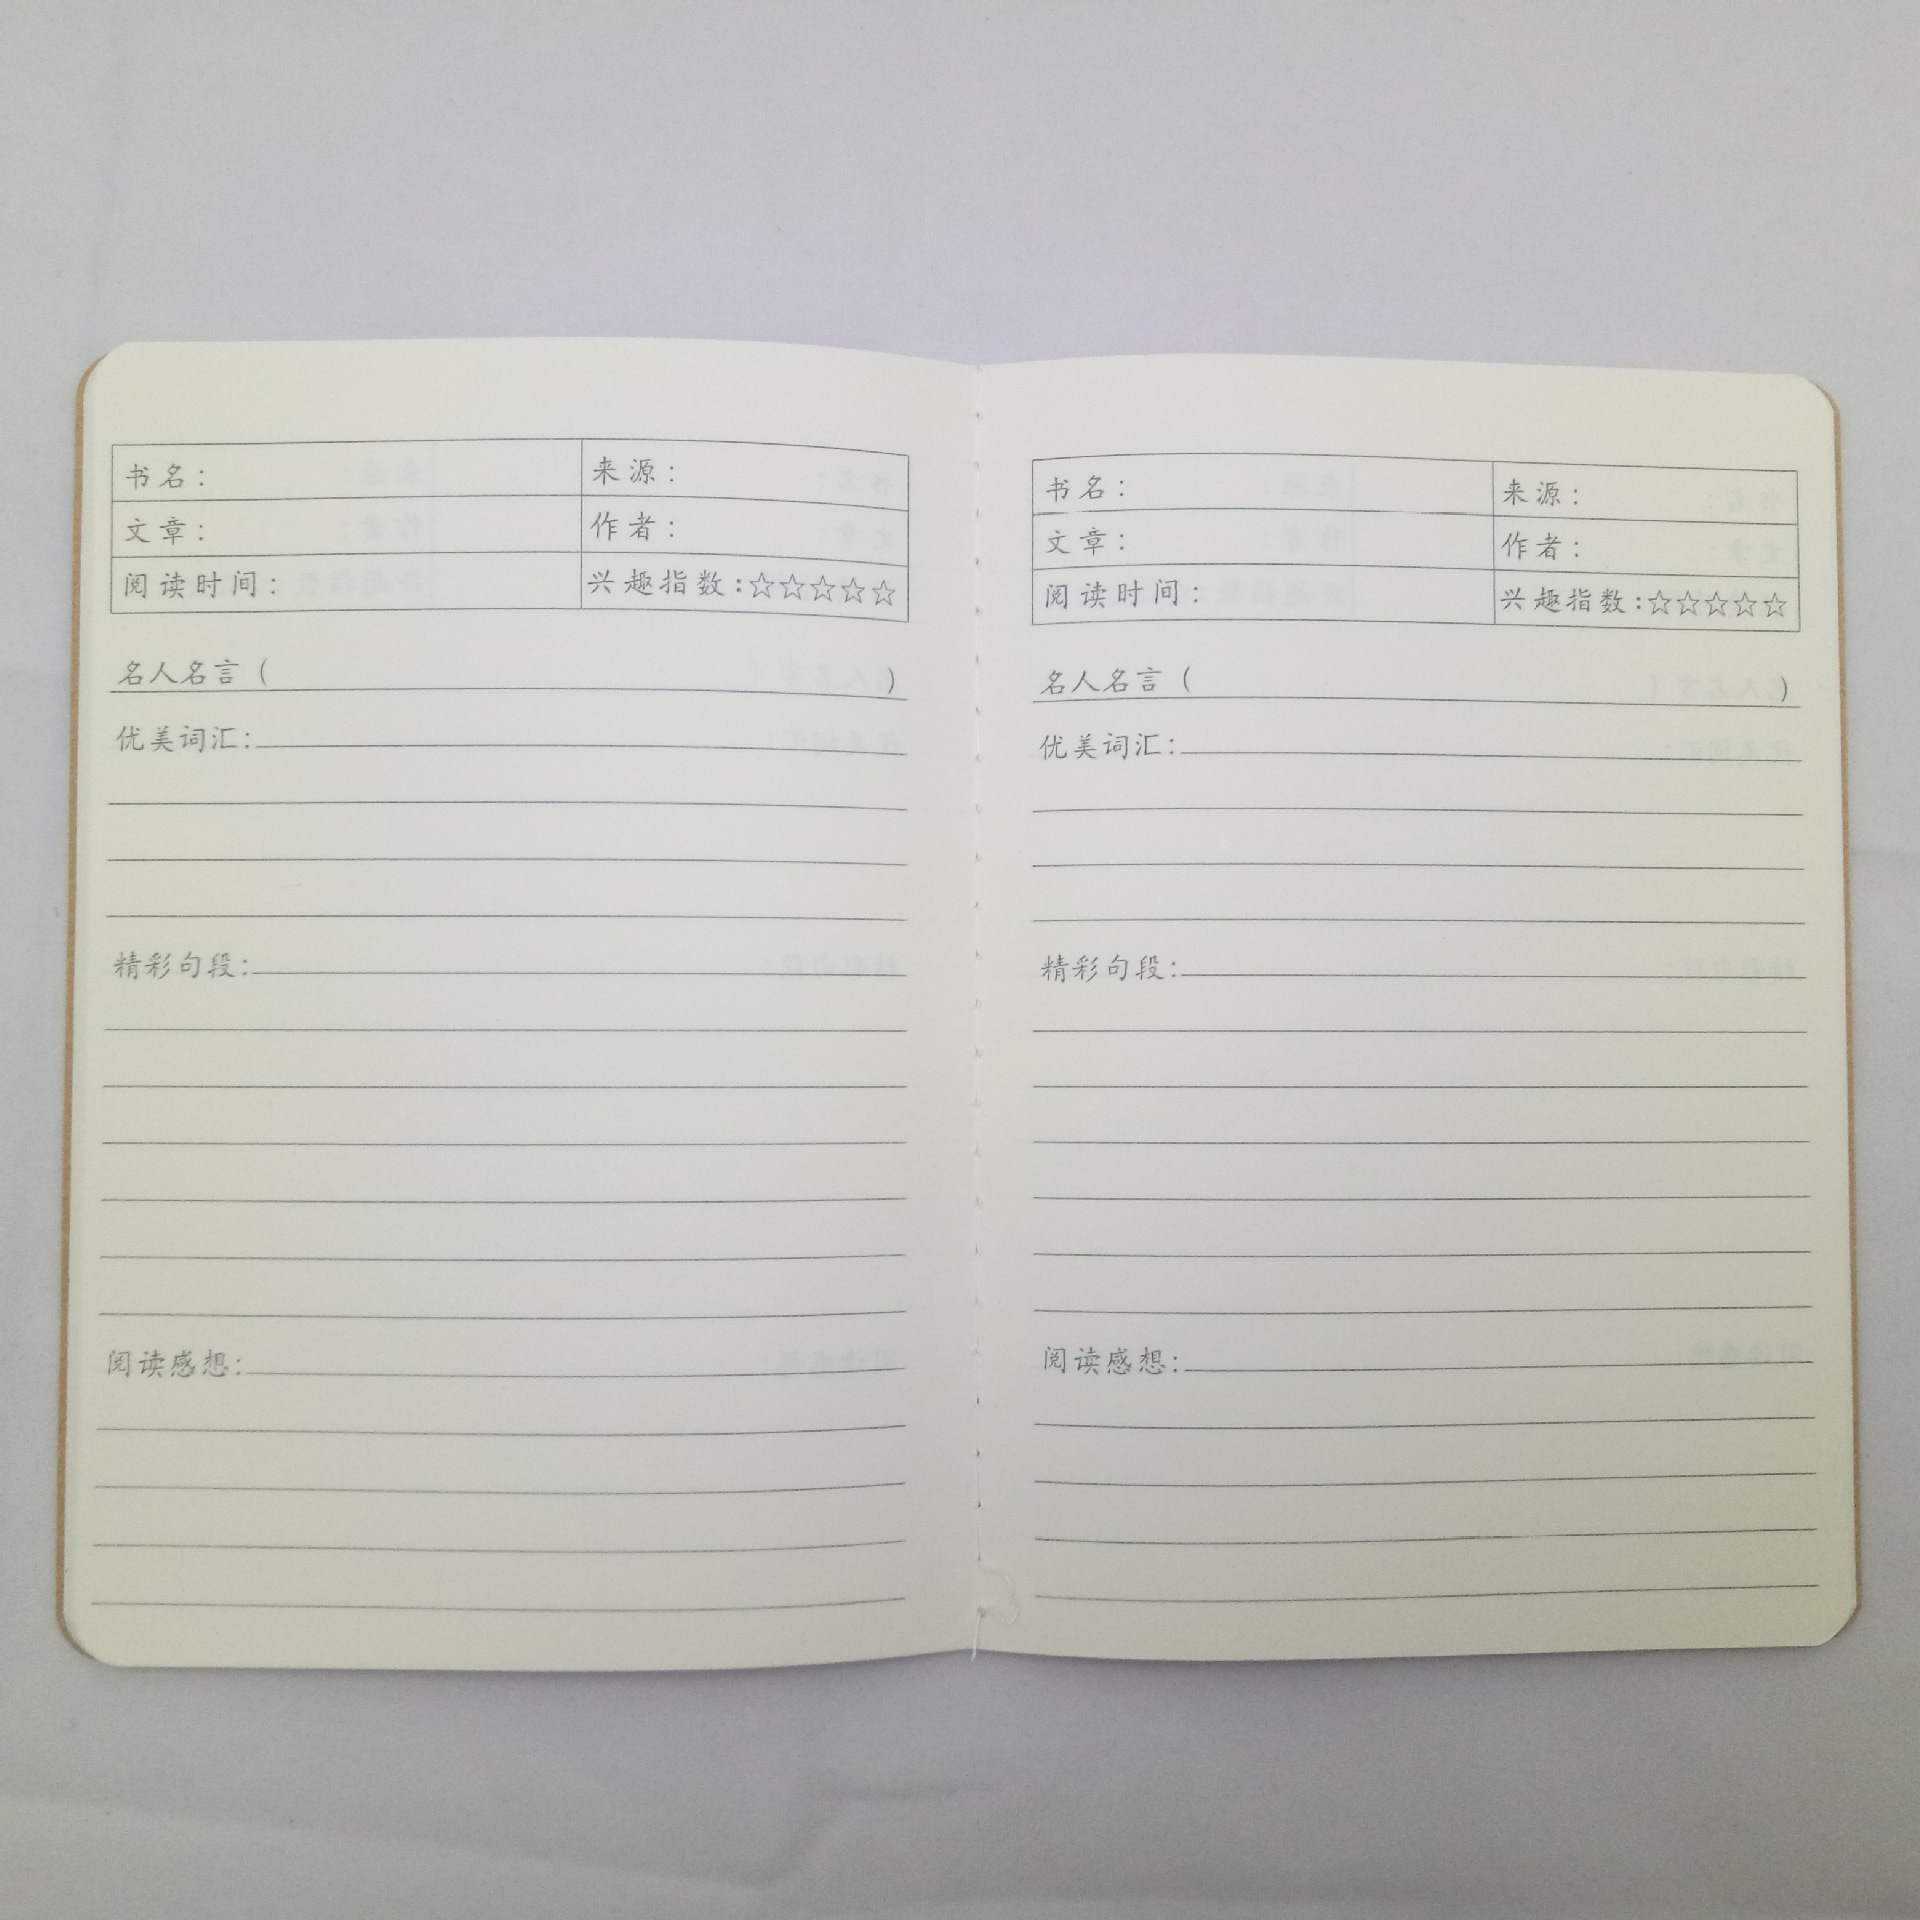 书名： 来源：
文章： 作者：
阅读时间： 兴趣指数：☆☆☆☆☆
名人名言（ ）
优美词汇：
精彩句段：
阅读感想：
书名： 来源：
文章： 作者：
阅读时间： 兴趣指数：☆☆☆☆☆
名人名言（ ）
优美词汇：
精彩句段：
阅读感想：